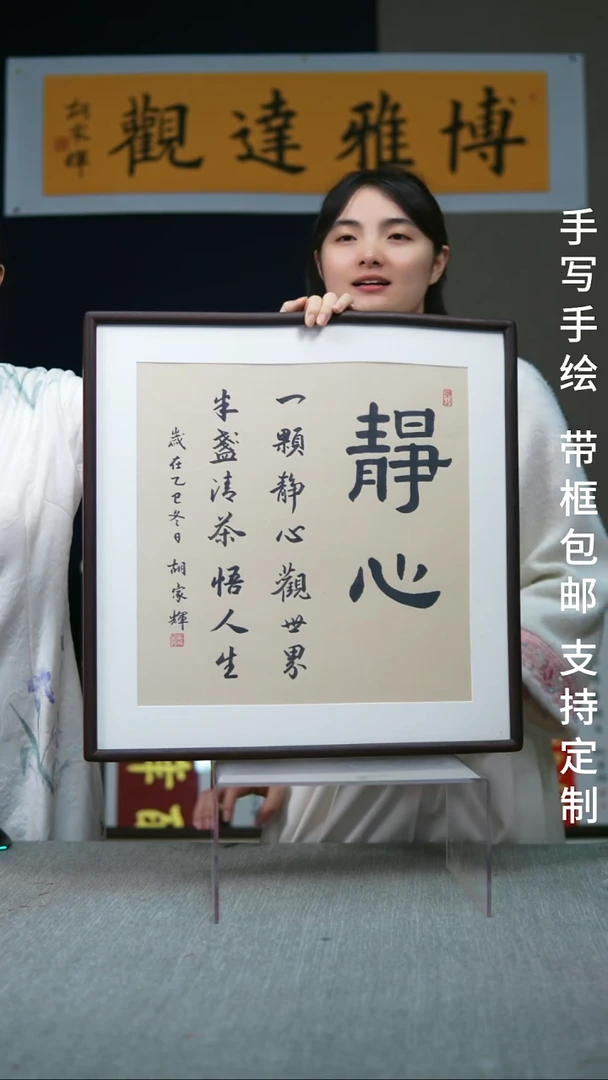 博雅達觀
胡家輝
靜心
一顆靜心觀世界
半盞清茶悟人生
歲在乙巳冬日 胡家輝
手写手绘 带框包邮 支持定制